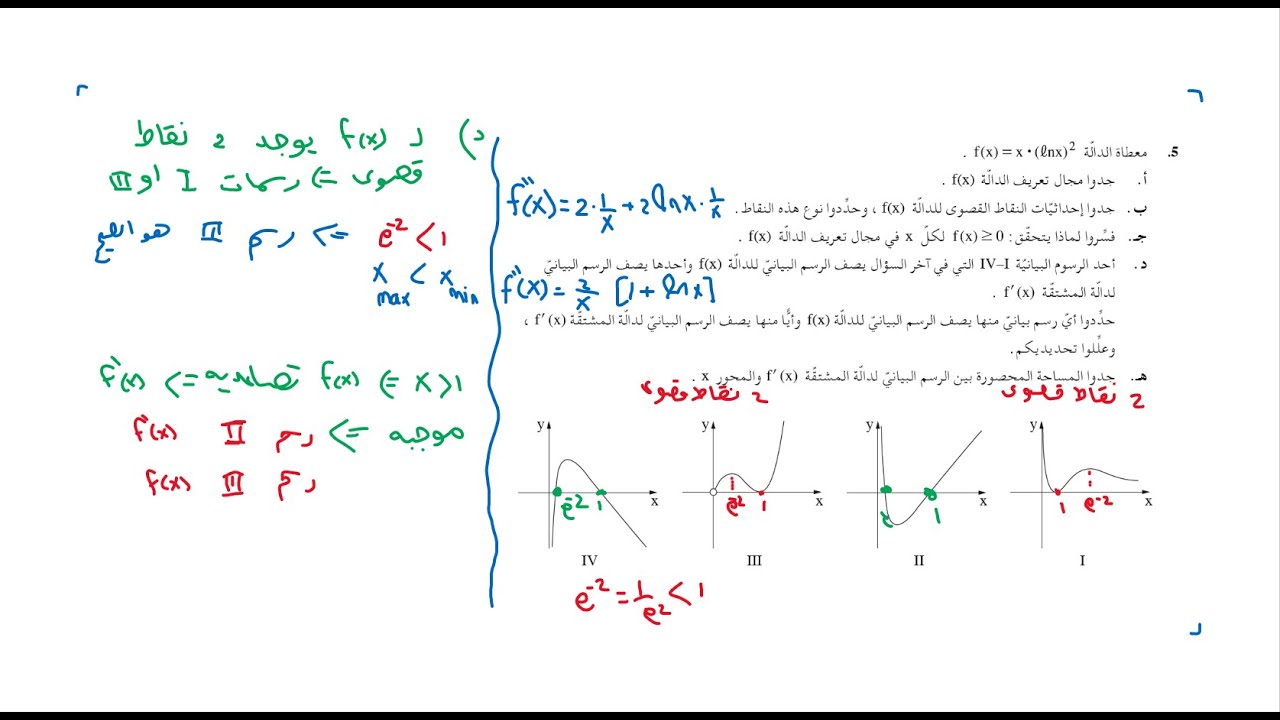 5. معطاة الدالّة f(x) = x • (ℓnx)² .
أ. جدوا مجال تعريف الدالّة f(x) .
ب. جدوا إحداثيّات النقاط القصوى للدالّة f(x) ، وحدِّدوا نوع هذه النقاط .
جـ. فسِّروا لماذا يتحقّق : f(x) ≥ 0 لكلّ x في مجال تعريف الدالّة f(x) .
د. أحد الرسوم البيانيّة I–IV التي في آخر السؤال يصف الرسم البيانيّ للدالّة f(x) وأحدها يصف الرسم البيانيّ
لدالّة المشتقّة f'(x) .
حدِّدوا أيّ رسم بيانيّ منها يصف الرسم البيانيّ للدالّة f(x) وأيًّا منها يصف الرسم البيانيّ لدالّة المشتقّة f'(x) ،
وعلِّلوا تحديديكم .
هـ. جدوا المساحة المحصورة بين الرسم البيانيّ لدالّة المشتقّة f'(x) والمحور x .
2 نقاط قصوى
2 نقاط قصوى
y
x
1
e-2
I
y
x
1
II
y
x
e-2
1
III
y
x
e-2
1
IV
e-2 = 1/e2 < 1
f''(x) = 2·1/x + 2lnx·1/x
f''(x) = 2/x [1 + lnx]
د) لـ f(x) يوجد 2 نقاط
قصوى <= رسمات I او III
e-2 < 1 <= رسم III هو
x max < x min
x > 1 <= f(x) تصاعدية <= f'(x)
موجبه <= رسم II f'(x)
رسم III f(x)